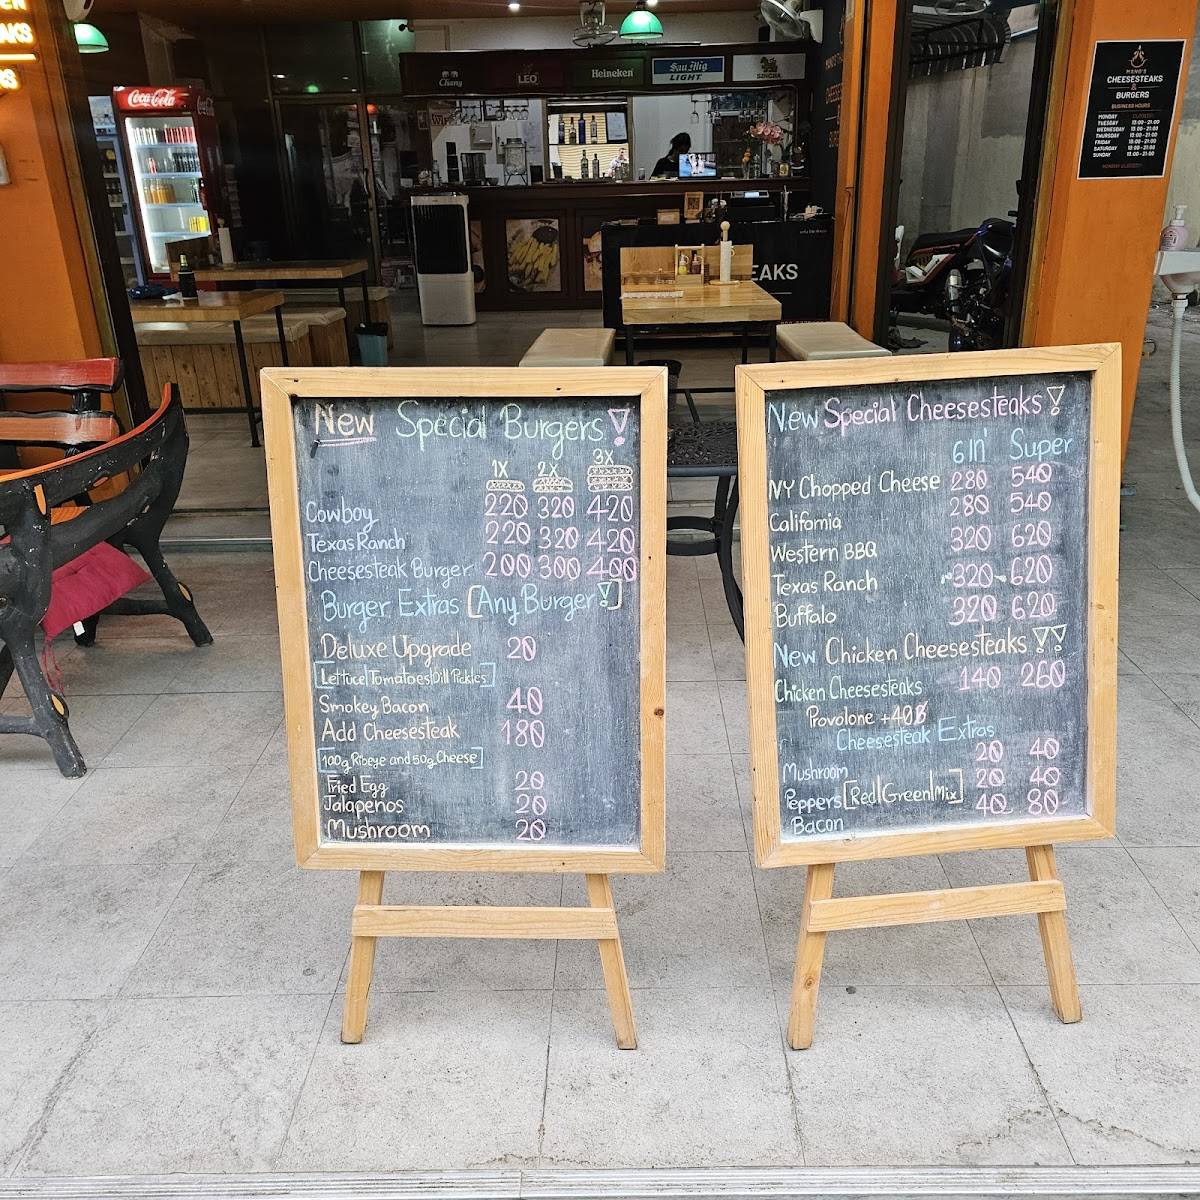 EN
AKS
RS
Coca-Cola
Chang
LEO
Heineken
San Mig
LIGHT
SINGHA
EAKS
CHEESESTEAKS
&
BURGERS
BUSINESS HOURS
MONDAY CLOSED
TUESDAY 13:00 - 21:00
WEDNESDAY 13:00 - 21:00
THURSDAY 13:00 - 21:00
FRIDAY 13:00 - 21:00
SATURDAY 13:00 - 21:00
SUNDAY 13:00 - 21:00
New Special Burgers!
1X 2X 3X
Cowboy 220 320 420
Texas Ranch 220 320 420
Cheesesteak Burger 200 300 400
Burger Extras [Any Burger!]
Deluxe Upgrade 20
[Lettuce|Tomatoes|Dill Pickles]
Smokey Bacon 40
Add Cheesesteak 180
[100g Ribeye and 50g Cheese]
Fried Egg 20
Jalapenos 20
Mushroom 20
New Special Cheesesteaks!
6 in' Super
NY Chopped Cheese 280 540
California 280 540
Western BBQ 320 620
Texas Ranch 320 620
Buffalo 320 620
New Chicken Cheesesteaks!!
Chicken Cheesesteaks 140 260
Provolone +40฿
Cheesesteak Extras
Mushroom 20 40
Peppers [Red|Green|Mix] 20 40
Bacon 40 80